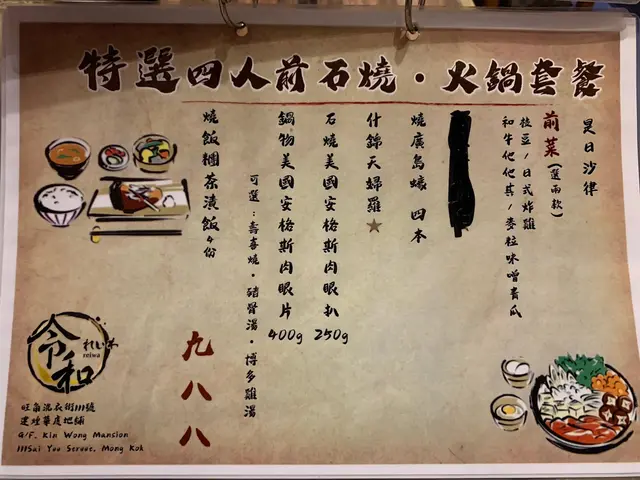 特選四人前石燒・火鍋套餐
是日沙律
前菜(選兩款)
枝豆/日式炸雞
和牛他他其/麥粒味噌青瓜
燒廣島蠔 四本
什錦天婦羅★
石燒美國安格斯肉眼扒 250g
鍋物美國安格斯肉眼片 400g
可選:壽喜燒・豬骨湯・博多雞湯
燒飯糰茶漬飯4份
九八八
令和
れいわ
reiwa
旺角洗衣街111號
建煌華廈地鋪
G/F. Kin Wong Mansion
111Sai Yee Street, Mong Kok